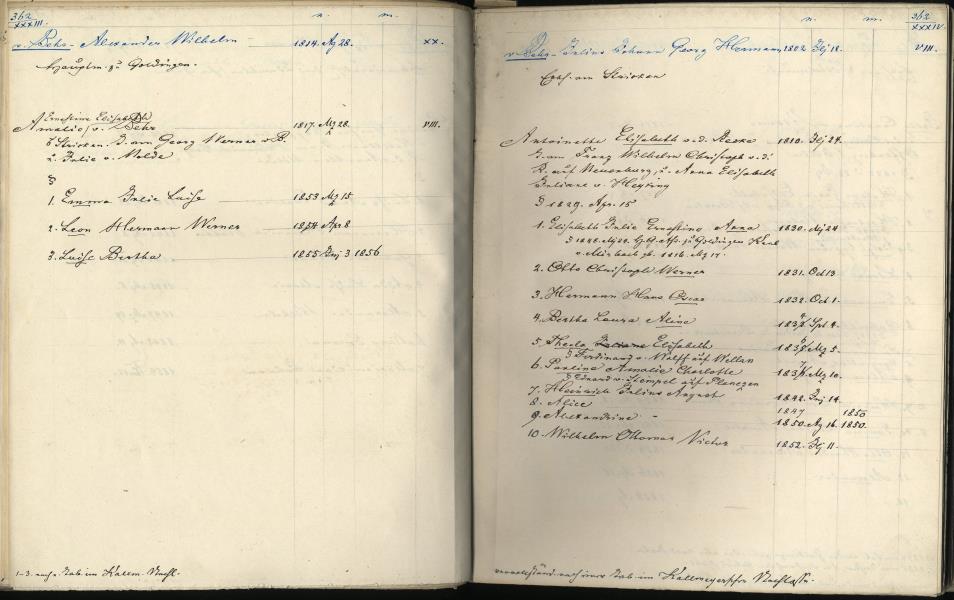 362
XXXIII.
n. m.
v. Behr - Alexander Wilhelm 1814. Ag 28. XX.
Hauptm. zu Goldingen.
Ernestine Elisabeth
Amalie v. Behr 1817. Mz 28. VIII.
Stricken T. von Georg Werner v. B.
u. Julie v. Melde
1. Emma Julie Luise 1853 Mz 15
2. Leon Hermann Werner 1854 Apr 8
3. Luise Bertha 1855 Juj 3 1856
1-3. nach Tab. im Kallm. Nachl.
362
XXXIV.
n. m.
v. Behr - Julius Johann Georg Hermann 1802 18. VIII.
Erbh. von Stricken
Antoinette Elisabeth v. d. Recke 1810. 24.
T. von Franz Wilhelm Christoph v. d.
R. auf Neuenburg, u. Anna Elisabeth
Juliane v. Heyking
1829. Apr. 15
1. Elisabeth Julie Ernestine Anna 1830. 24
zu Goldingen
v. 1816.
2. Otto Christoph Werner 1831. Oct 13
3. Hermann Hans Oscar 1832. Oct 1.
4. Bertha Laura Aline Spt 4.
5. Thecla Elisabeth Mz 5.
Ferdinand v. Wolff auf
6. Pauline Amalie Charlotte Mz 10.
Eduard v. Stempel auf
7. Heinrich Julius August 1842. 14
8. Alice 1847 1850
9. Alexandrine - 1850. Ag 16. 1850.
10. Wilhelm Othomar Victor 1852. 11.
nach einer Tab. im Kallmeyerschen Nachlasse.